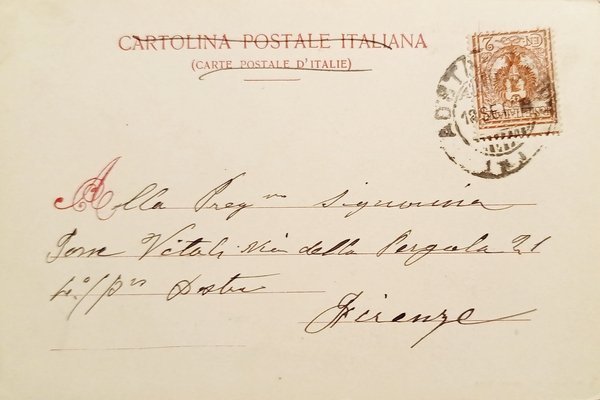 CARTOLINA POSTALE ITALIANA
(CARTE POSTALE D'ITALIE)
Alla Preg.ma Signorina
Vitali Via della Pergola 21
4°/p.no Destra
Firenze